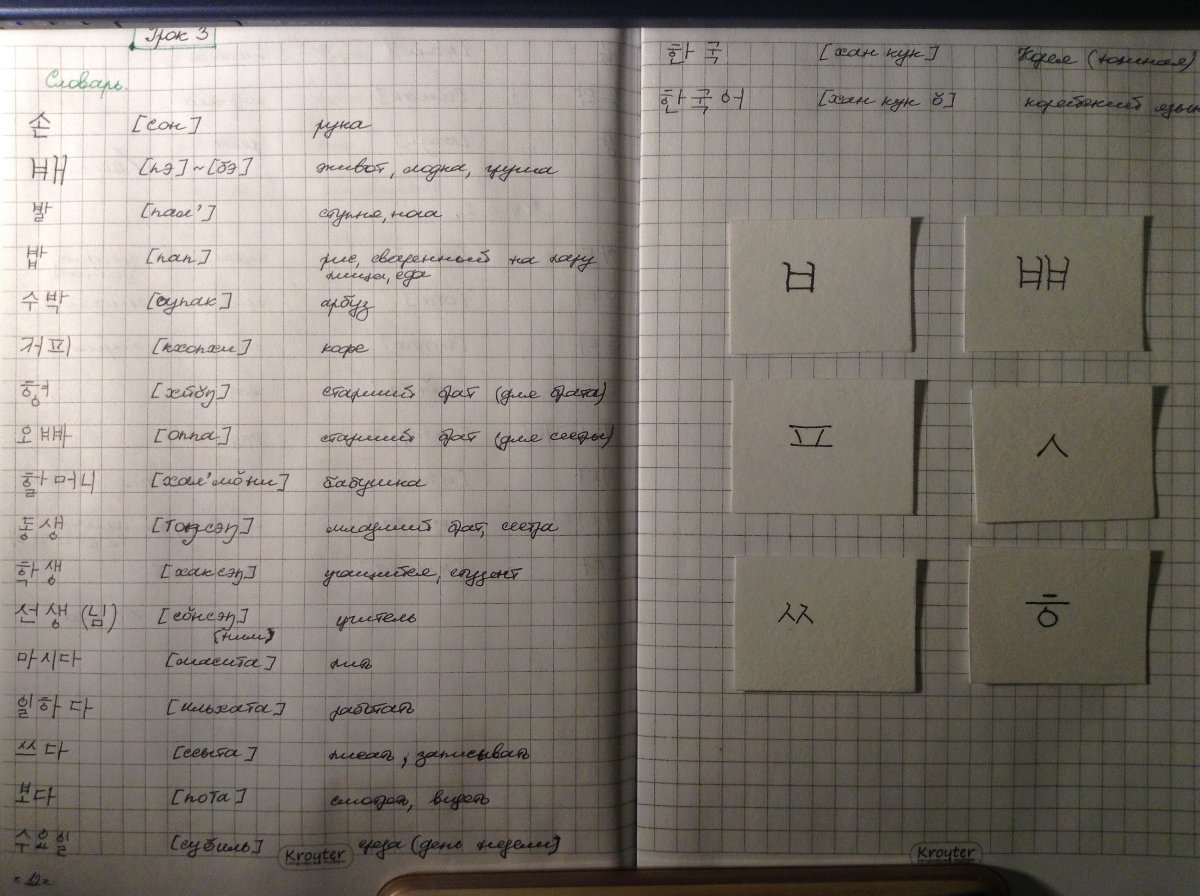 Урок 3
Словарь.
손 [сон] рука
배 [пэ] ~ [бэ] живот, лодка, груша
발 [пал'] ступня, нога
밥 [пап] рис, сваренный на пару
пища, еда
수박 [супак] арбуз
커피 [кхопхи] кофе
형 старший брат (для брата)
오빠 [оппа] старший брат (для сестры)
할머니 [хал'мŏни] бабушка
동생 [тоŋсэŋ] младший брат, сестра
학생 [хаксэŋ] учащийся, студент
선생 (님) [сŏнсэŋ] учитель
(ним)
마시다 [масита] пить
일하다 [ильхата] работать
쓰다 [ссыта] писать, записывать
보다 [пота] смотреть, видеть
수요일 среда (день недели)
Kroyter
-12-
한국 [хан кук] Корея (южная)
한국어 [хан кук ŏ] корейский язык
ㅂ ㅃ
ㅍ ㅅ
ㅆ ㅎ
Kroyter